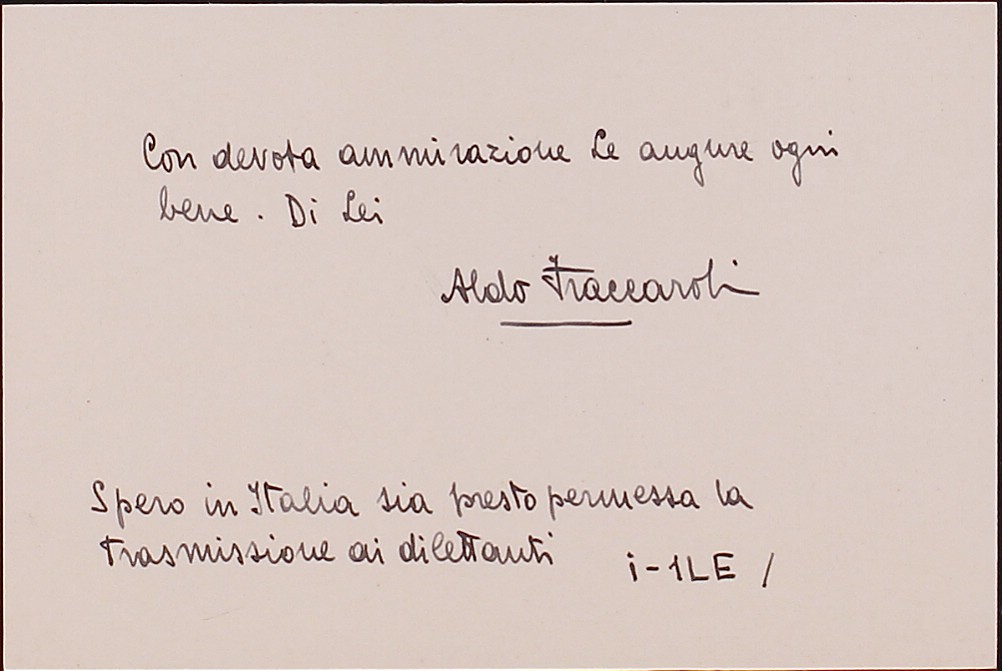 Con devota ammirazione Le augure ogni
bene. Di Lei
Aldo Fraccaroli
Spero in Italia sia presto permessa la
trasmissione ai dilettanti
i-1LE /